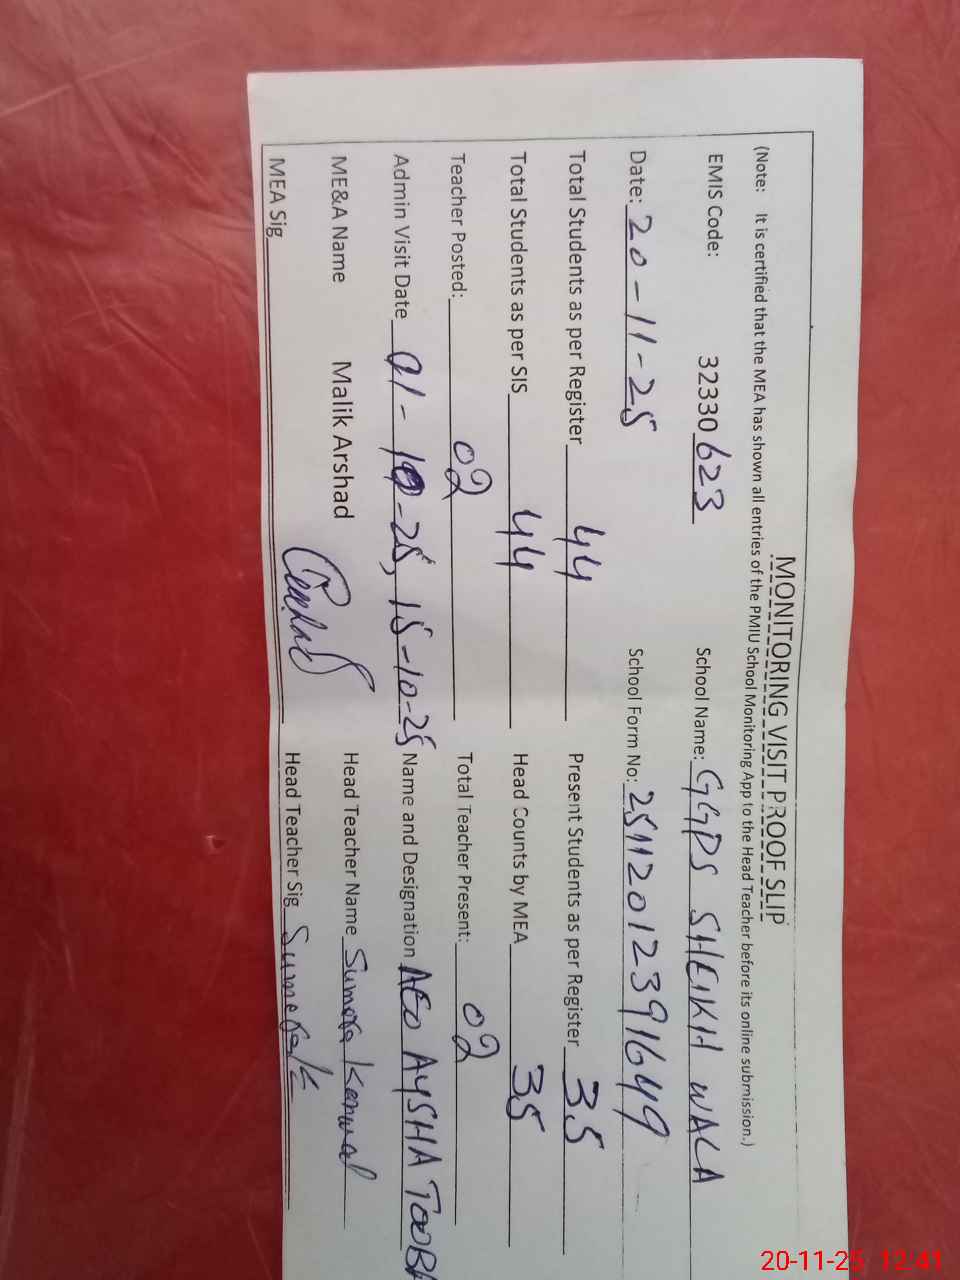 MONITORING VISIT PROOF SLIP
(Note: It is certified that the MEA has shown all entries of the PMIU School Monitoring App to the Head Teacher before its online submission.)
EMIS Code: 32330 623 School Name: GGPS SHEIKH WALA
Date: 20-11-25 School Form No: 2511201239 1649
Total Students as per Register 44 Present Students as per Register 35
Total Students as per SIS 44 Head Counts by MEA 35
Teacher Posted: 02 Total Teacher Present: 02
Admin Visit Date 01-10-25, 15-10-25 Name and Designation AEO AYSHA TOOBA
ME&A Name Malik Arshad Head Teacher Name Sumera Kanwal
MEA Sig Arshad Head Teacher Sig Sumera k
20-11-25 12:41